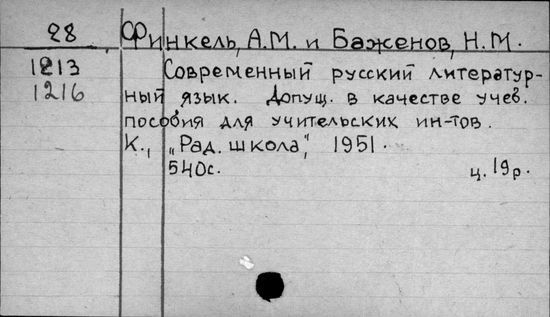 28 Финкель, А.М. и Баженов, Н.М.
1213 Современный русский литератур-
1216 ный язык. Допущ. в качестве учеб.
пособия для учительских ин-тов.
К., „Рад. школа", 1951.
540с. ц. 19р.